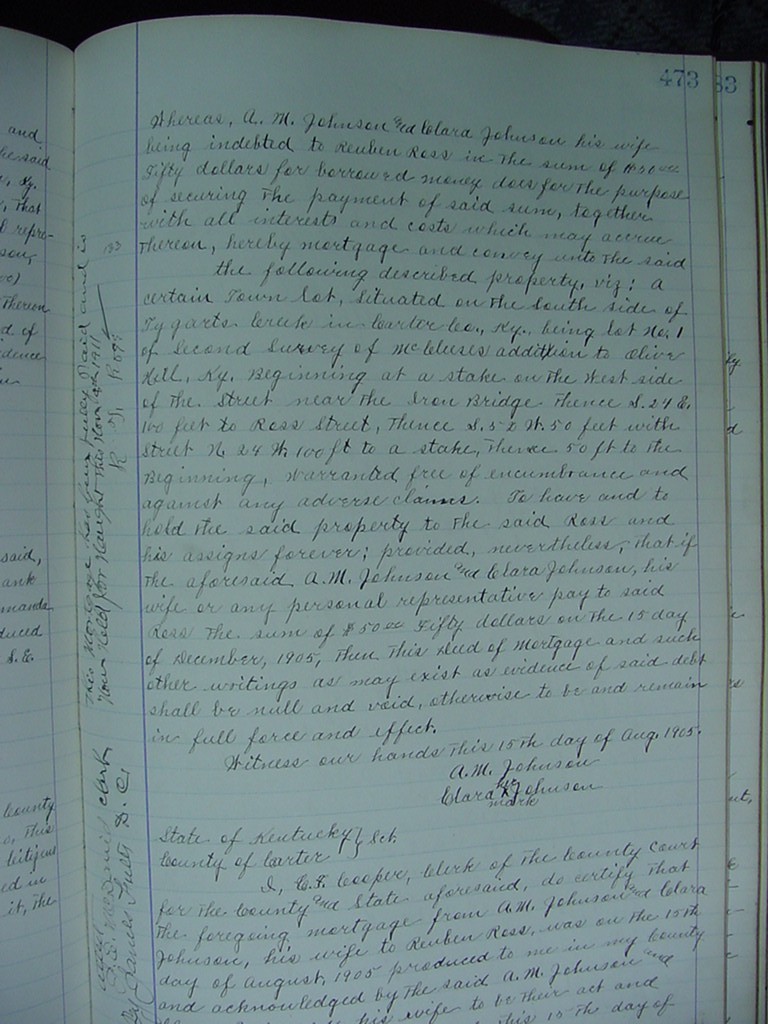 473
83
Whereas, A. M. Johnson and Clara Johnson his wife
being indebted to Reuben Ross in the sum of $50 00
Fifty dollars for borrowed money does for the purpose
of securing the payment of said sum, together
with all interests and costs which may accrue
thereon, hereby mortgage and convey unto the said
the following described property, viz: A
certain Town lot, situated on the South side of
Tygarts Creek in Carter Co., Ky. being lot No. 1
of Second Survey of McCleeses addition to Olive
Hill, Ky. Beginning at a stake on the West side
of the Street near the Iron Bridge thence S. 24 E.
100 feet to Ross Street, thence S. 52 W. 50 feet with
Street N. 24 W. 100 ft to a stake, thence 50 ft to the
Beginning, warranted free of encumbrance and
against any adverse claims. To have and to
hold the said property to the said Ross and
his assigns forever; provided, nevertheless, that if
the aforesaid A. M. Johnson and Clara Johnson, his
wife or any personal representative pay to said
Ross the sum of $50 00 Fifty dollars on the 15 day
of December, 1905, then this deed of Mortgage and such
other writings as may exist as evidence of said debt
shall be null and void, otherwise to be and remain
in full force and effect.
Witness our hands this 15th day of Aug. 1905.
A. M. Johnson
Clara her X Johnson
mark
State of Kentucky } Sct.
County of Carter
I, Cooper, Clerk of the County Court
for the County and State aforesaid, do certify that
the foregoing mortgage from A. M. Johnson and Clara
Johnson, his wife to Reuben Ross, was on the 15th
day of August, 1905 produced to me in my County
and acknowledged by the said A. M. Johnson and
his wife to be their act and
this 15th day of
This Mortgage has been fully Paid and is
1911
Clerk
By James D. C.
and
he said
Ky.
that
repre-
thereon
d of
said,
ank
manda
duced
S. E.
County
this
citizens
ed in
it, the